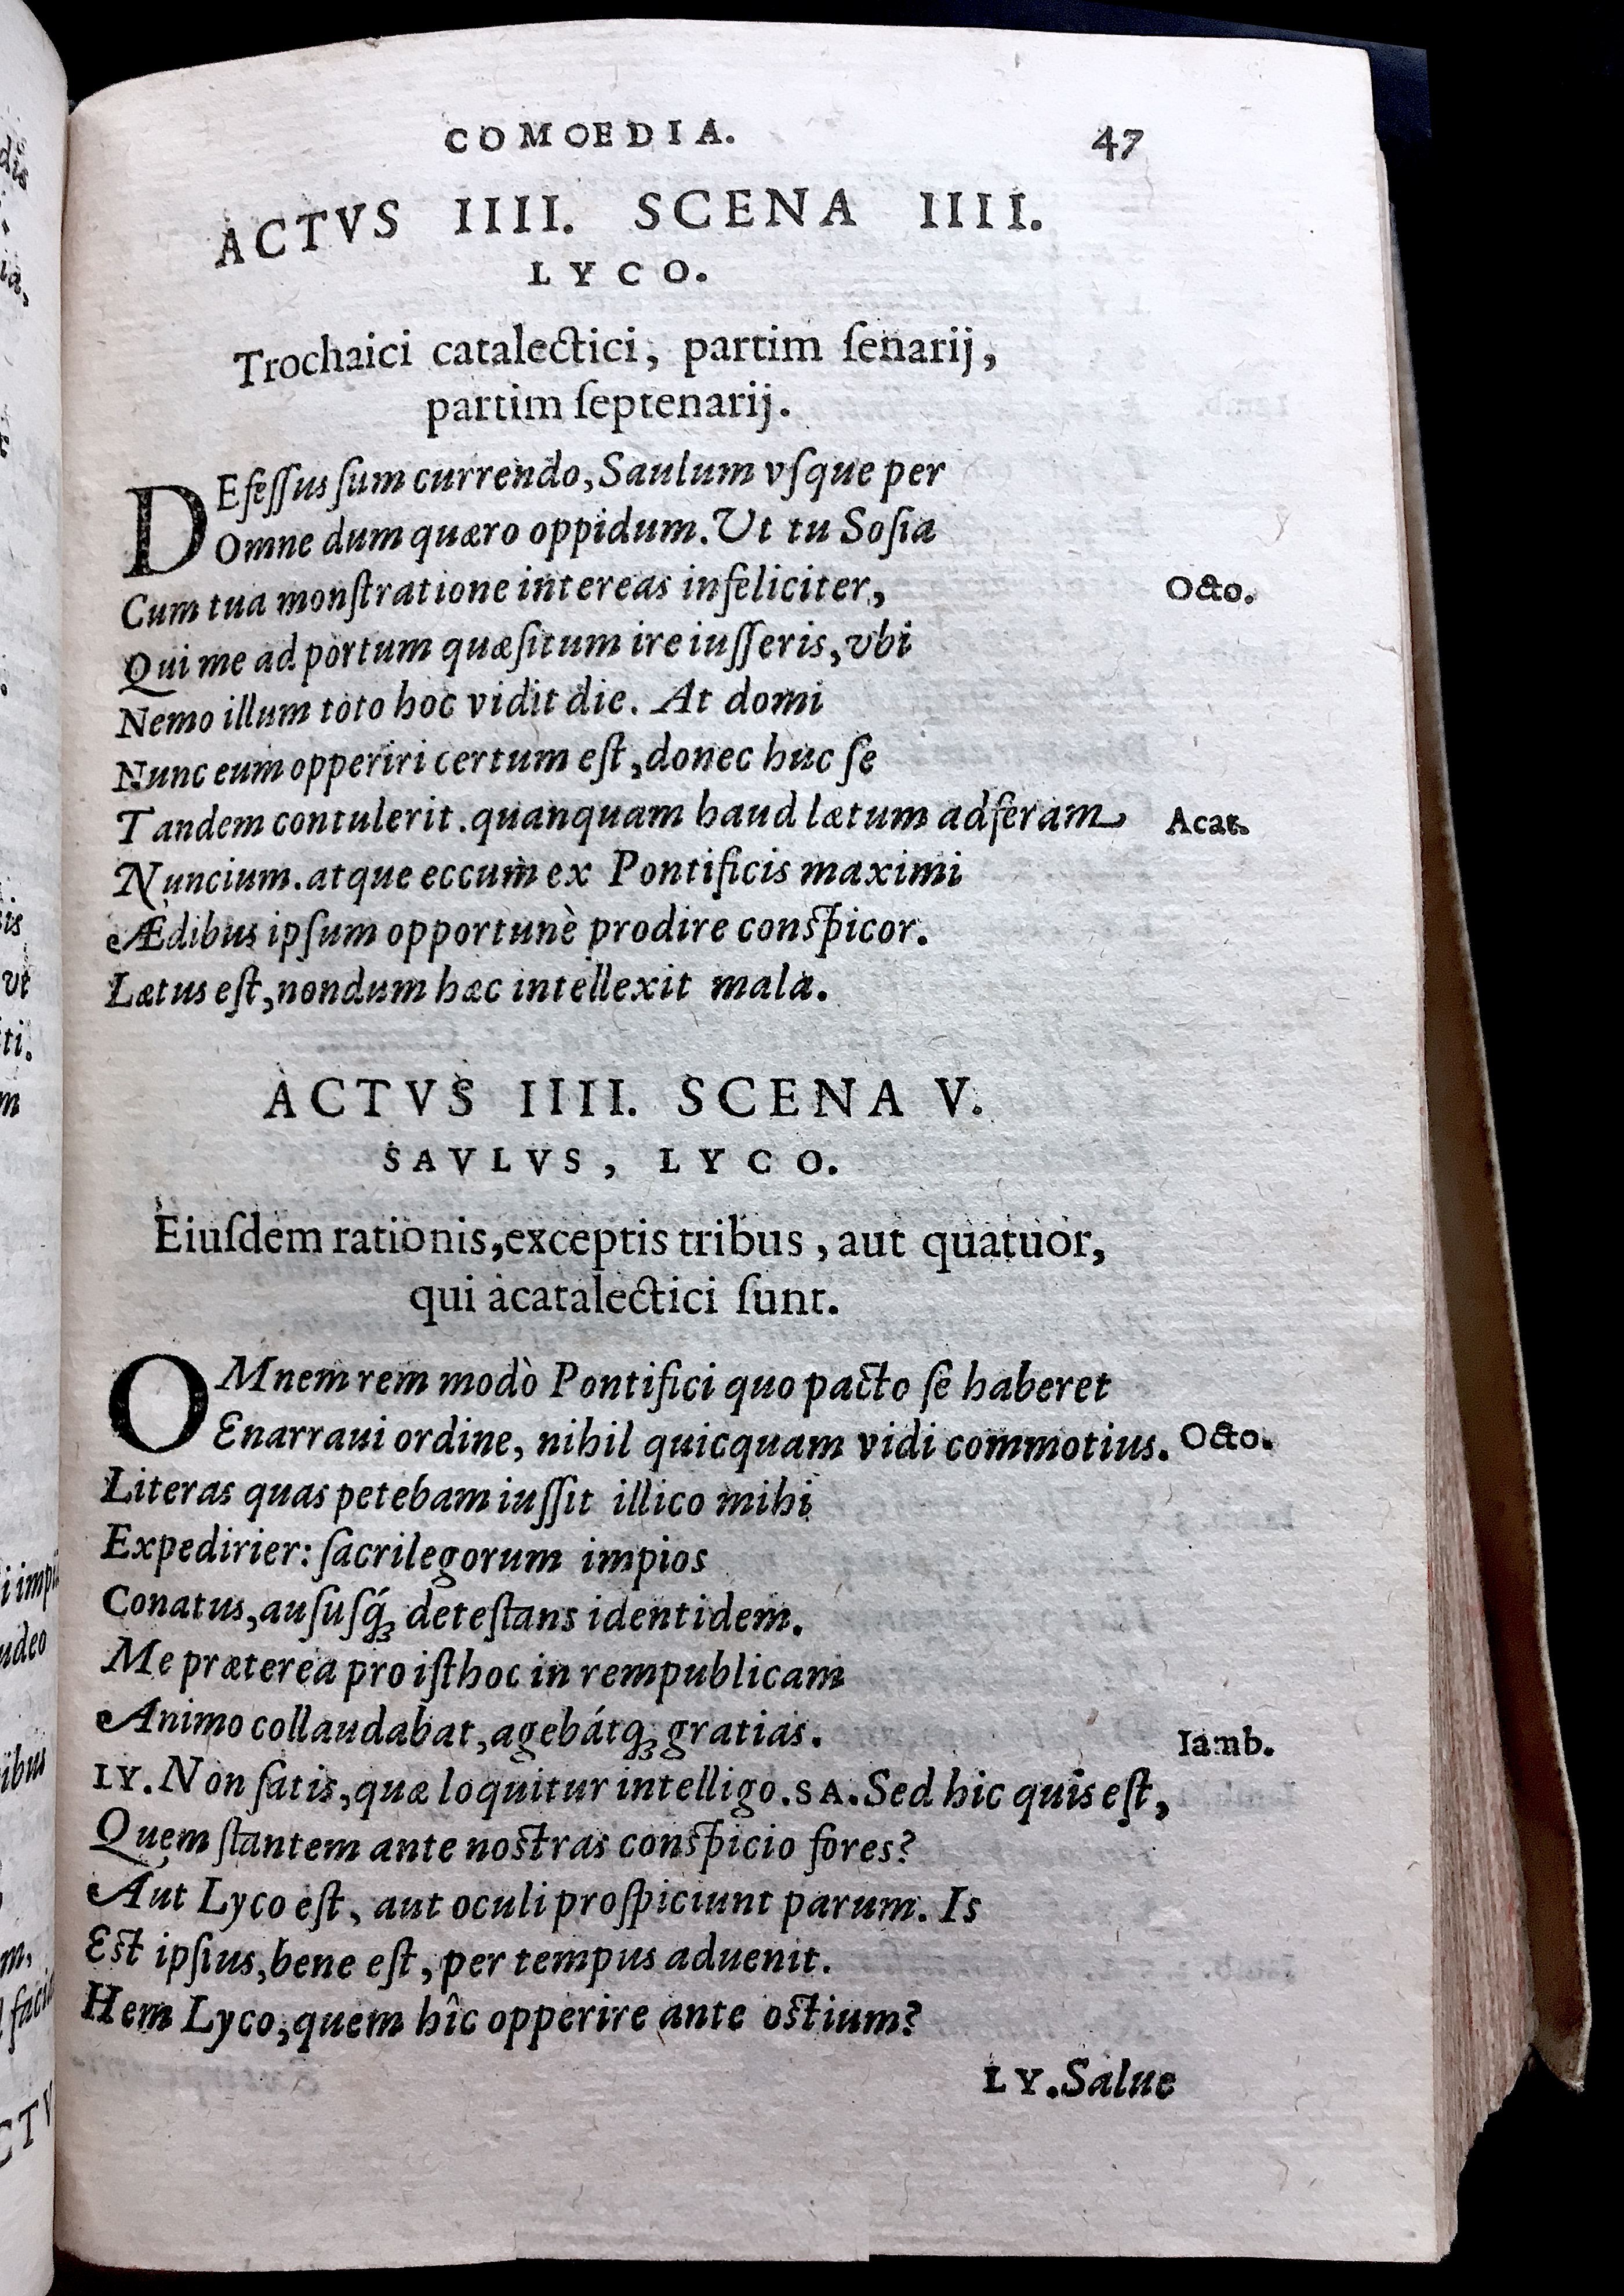 COMOEDIA. 47
ACTVS IIII. SCENA IIII.
LYCO.
Trochaici catalectici, partim ſenarij,
partim ſeptenarij.
DEfeſſus ſum currendo, Saulum vſque per
Omne dum quæro oppidum. Ut tu Soſia
Cum tua monſtratione intereas infeliciter, Octo.
Qui me ad portum quæſitum ire iuſſeris, vbi
Nemo illum toto hoc vidit die. At domi
Nunc eum opperiri certum eſt, donec huc ſe
Tandem contulerit. quanquam haud lætum adferam Acat.
Nuncium. atque eccum ex Pontificis maximi
Ædibus ipſum opportunè prodire conſpicor.
Lætus eſt, nondum hæc intellexit mala.
ACTVS IIII. SCENA V.
SAVLVS, LYCO.
Eiuſdem rationis, exceptis tribus, aut quatuor,
qui acatalectici ſunt.
OMnem rem modò Pontifici quo pacto ſe haberet
Enarraui ordine, nihil quicquam vidi commotius. Octo.
Literas quas petebam iuſſit illico mihi
Expedirier: ſacrilegorum impios
Conatus, auſuſq́; deteſtans identidem.
Me præterea pro iſthoc in rempublicam
Animo collaudabat, agebátq; gratias.
LY. Non ſatis, quæ loquitur intelligo. SA. Sed hic quis eſt, Iamb.
Quem ſtantem ante noſtras conſpicio fores?
Aut Lyco eſt, aut oculi proſpiciunt parum. Is
Eſt ipſius, bene eſt, per tempus aduenit.
Hem Lyco, quem hîc opperire ante oſtium?
LY. Salue